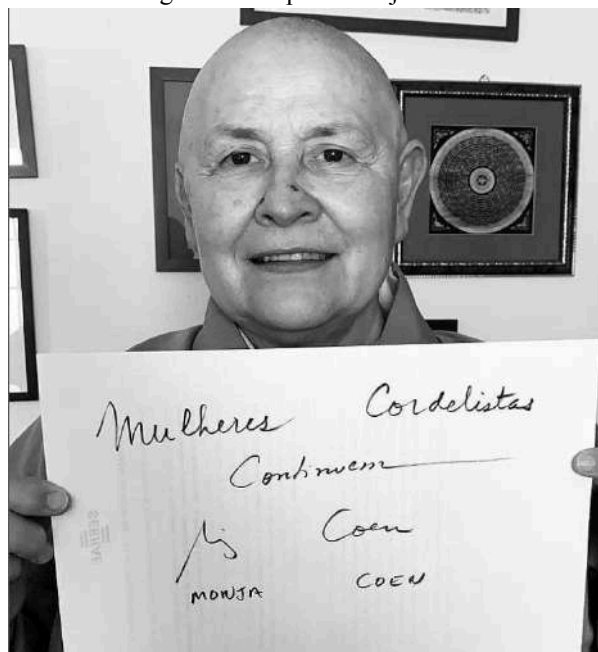 Mulheres Cordelistas
Continuem
Coen
MONJA COEN